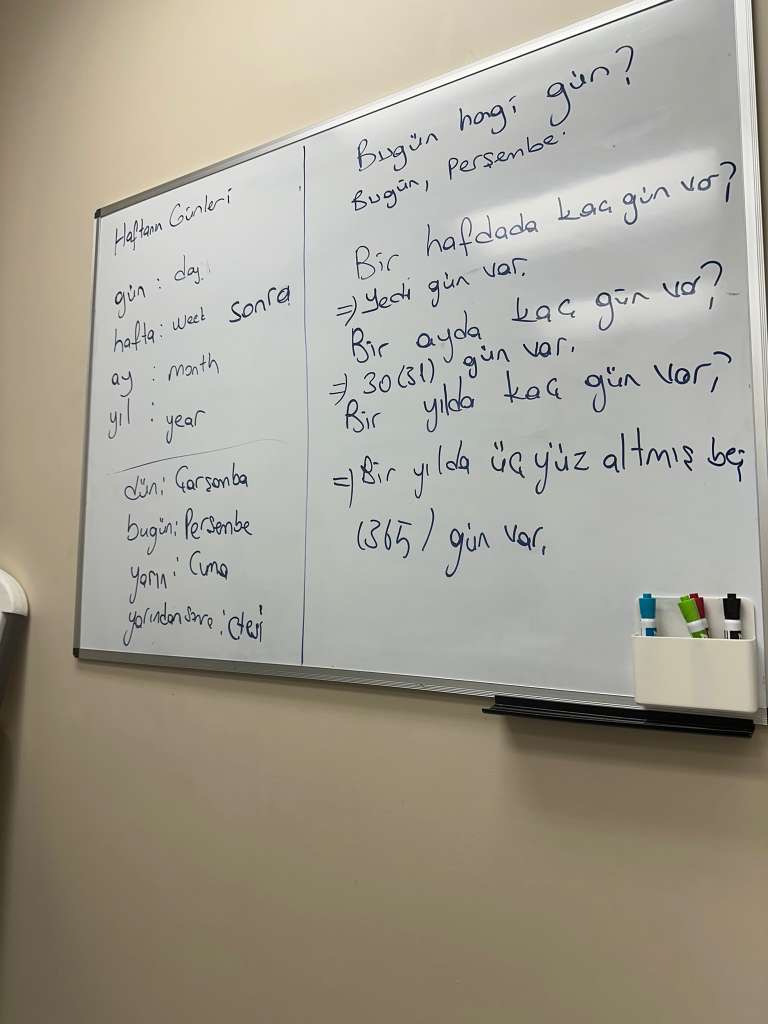 Haftanın Günleri
gün : day
hafta : week sonra
ay : month
yıl : year
dün : Çarşanba
bugün : Perşembe
yarın : Cuma
yarından sonra : Ctesi
Bugün hangi gün?
Bugün, Perşembe.
Bir hafdada kaç gün var?
⇒ Yedi gün var.
Bir ayda kaç gün var?
⇒ 30 (31) gün var.
Bir yılda kaç gün var?
⇒ Bir yılda üç yüz altmış beş
(365) gün var.